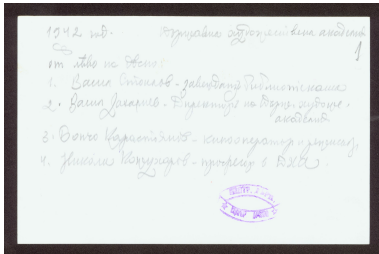 1942 год. Държавна художествена академия
1
от ляво на дясно:
1. Васил Стоилов - завеждащ библиотеката
2. Васил Захариев - Директор на Държ. худож.
академия
3. Бончо Карастоянов - кинооператор и режисьор,
4. Никола Кожухаров - професор в ДХА.